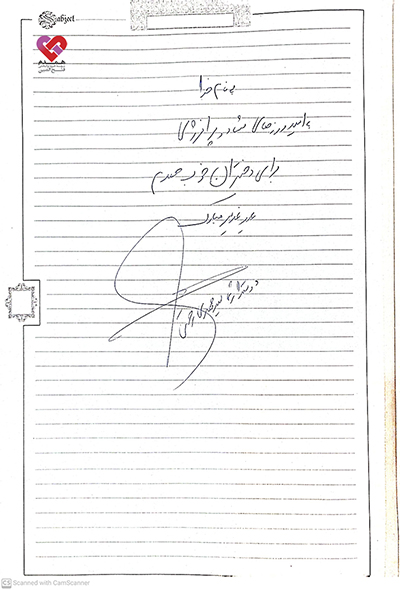 Subject
به نام خدا
به امید روزهای شاد و پر انرژی
برای دختران خوب همدم
عید غدیر مبارک
دوستدار شما
CS Scanned with CamScanner